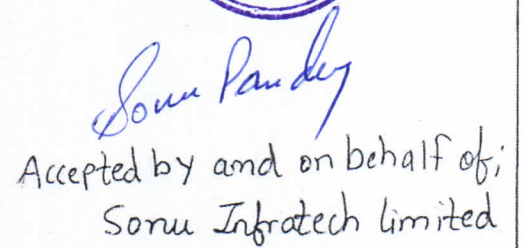 Sonu Pandey
Accepted by and on behalf of;
Sonu Infratech limited